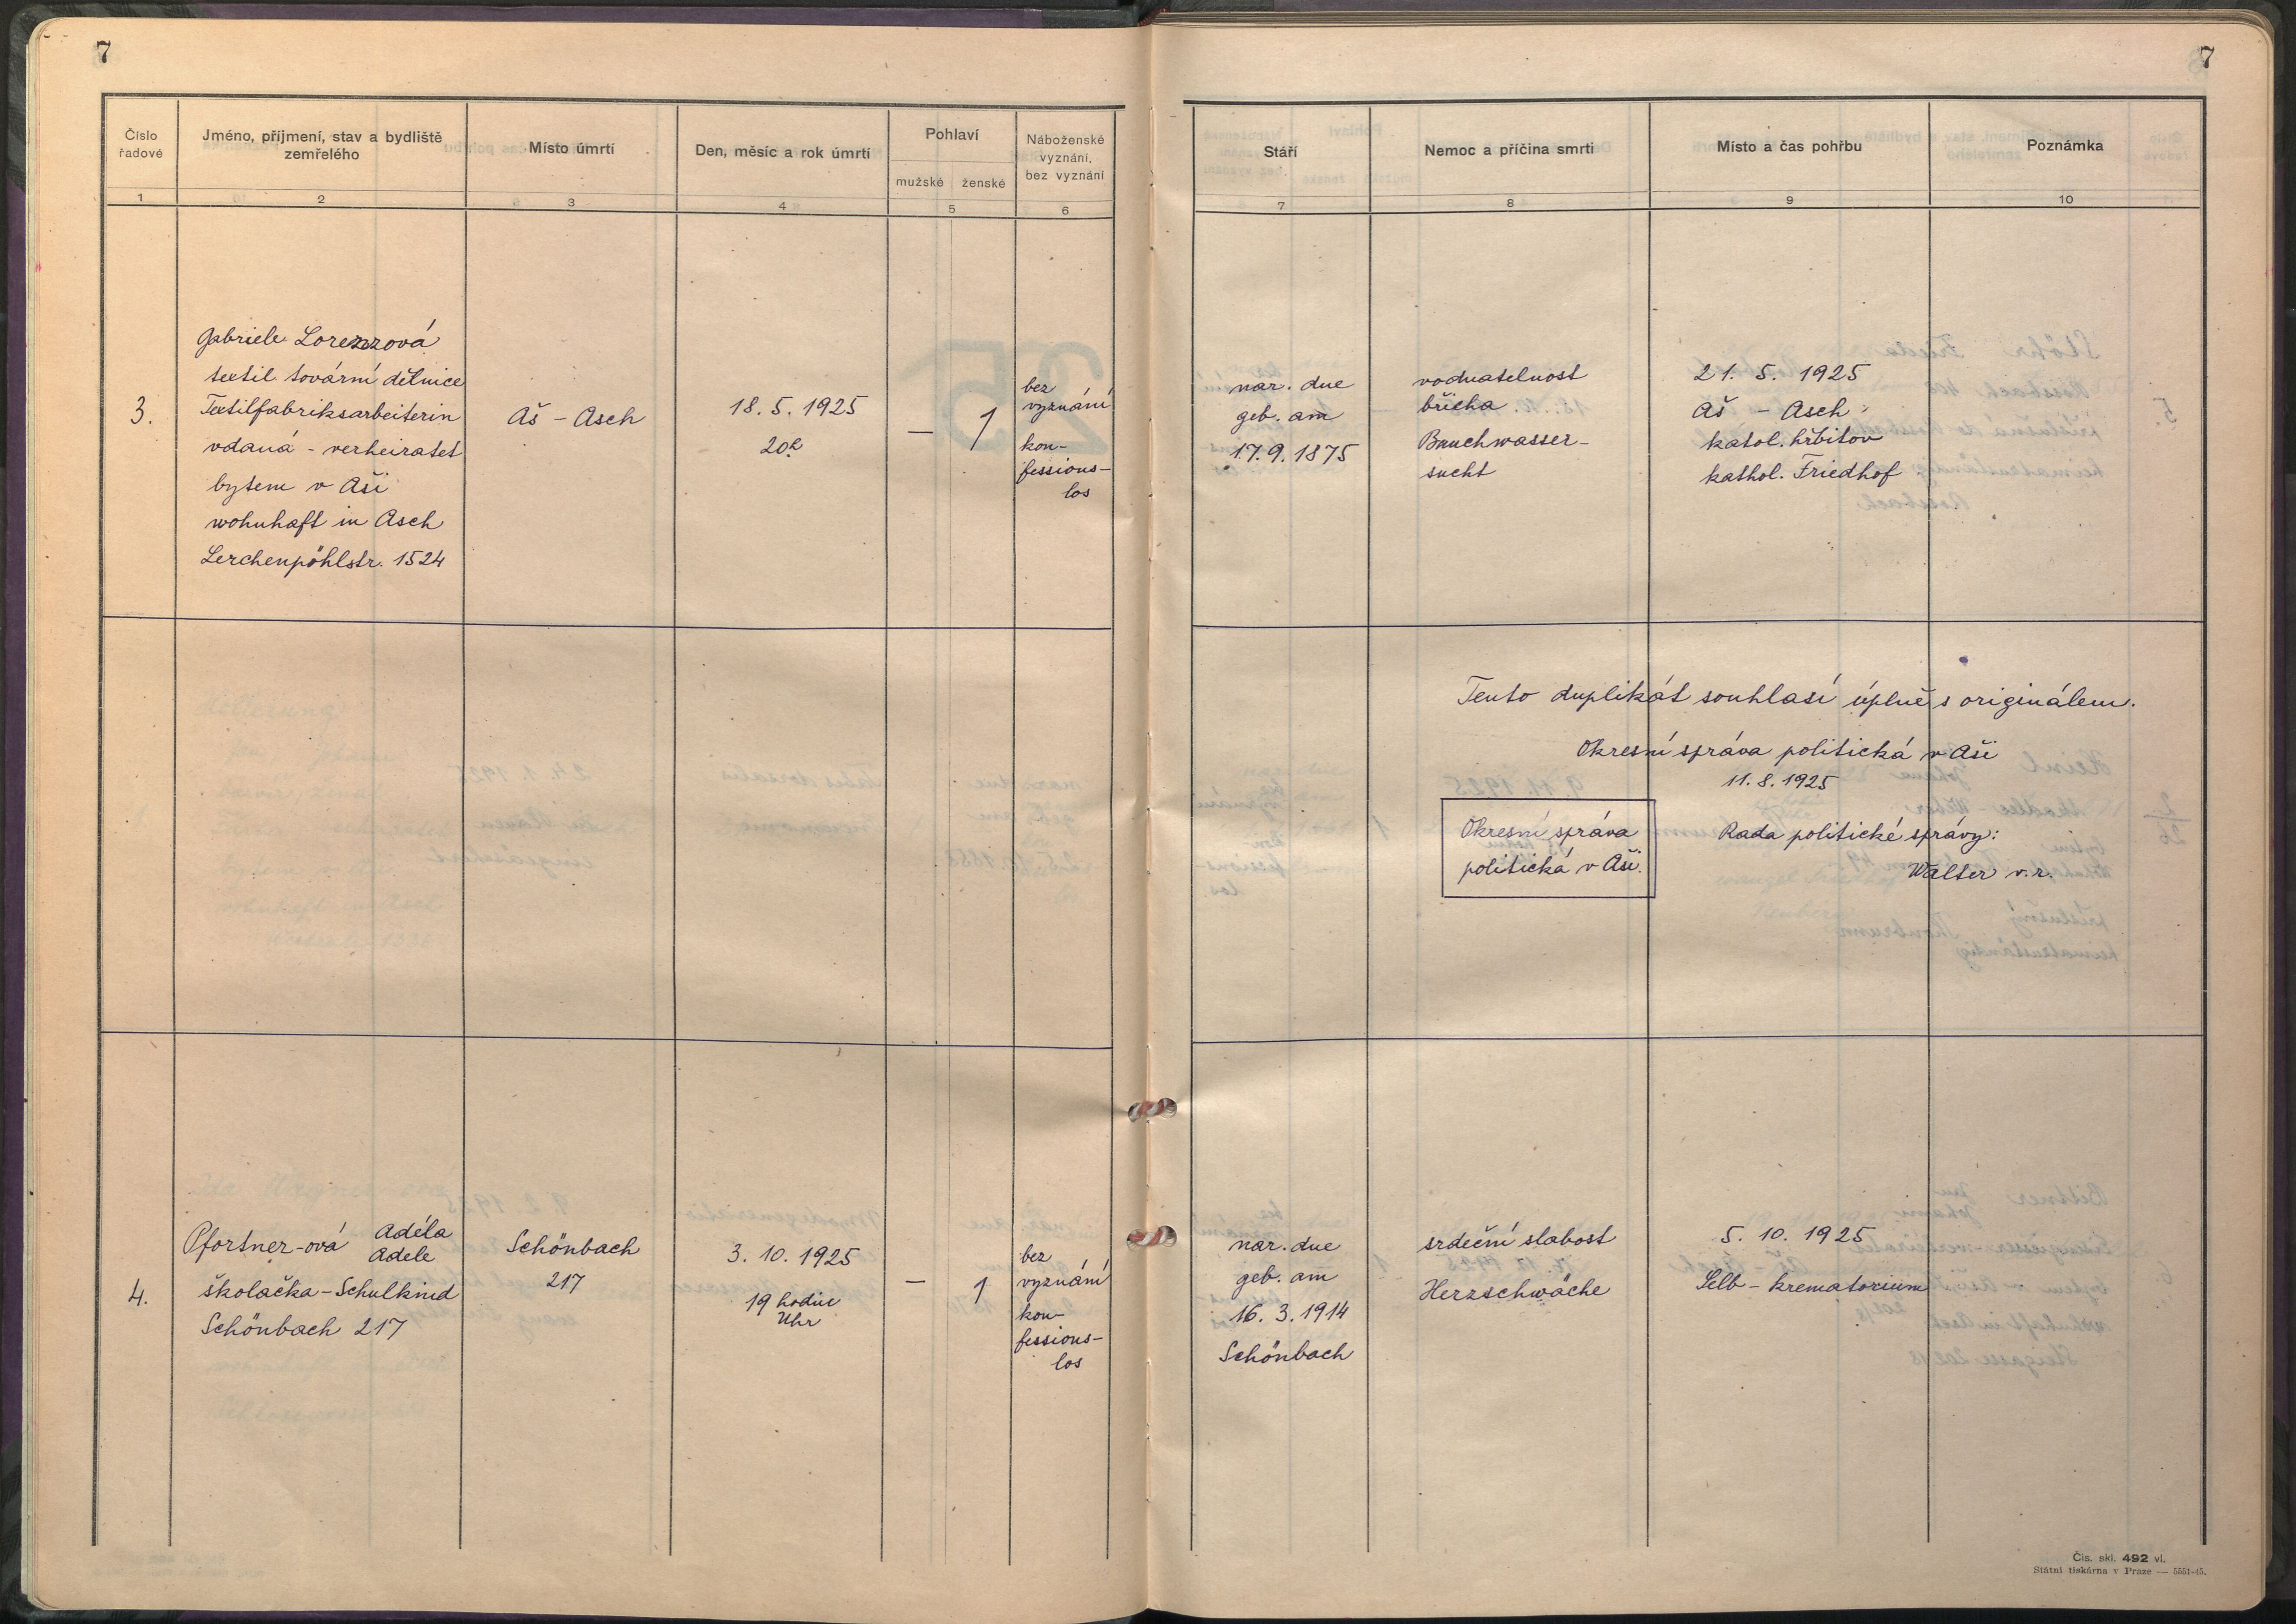 7
7
Číslo řadové
Jméno, příjmení, stav a bydliště zemřelého
Místo úmrtí
Den, měsíc a rok úmrtí
Pohlaví
mužské
ženské
Náboženské vyznání, bez vyznání
Stáří
Nemoc a příčina smrti
Místo a čas pohřbu
Poznámka
1
2
3
4
5
6
7
8
9
10
3.
Gabriele Lorenzová
textil. tovární dělnice
Textilfabriksarbeiterin
vdaná - verheiratet
bytem v Aši
wohnhaft in Asch
Lerchenpöhlstr. 1524
Aš - Asch
18. 5. 1925
20h
—
1
bez
vyznání
kon-
fessions-
los
nar. dne
geb. am
17. 9. 1875
vodnatelnost
břicha
Bauchwasser-
sucht
21. 5. 1925
Aš - Asch
katol. hřbitov
kathol. Friedhof
Tento duplikát souhlasí úplně s originálem.
Okresní správa politická v Aši
11. 8. 1925
Okresní správa
politická v Aši.
Rada politické správy:
Walter v. r.
4.
Pfortner-ová Adéla
Adele
školačka - Schulkind
Schönbach 217
Schönbach
217
3. 10. 1925
19 hodin
Uhr
—
1
bez
vyznání
kon-
fessions-
los
nar. dne
geb. am
16. 3. 1914
Schönbach
srdeční slabost
Herzschwäche
5. 10. 1925
Selb - krematorium
Čís. skl. 492 vl.
Státní tiskárna v Praze — 5551-45.